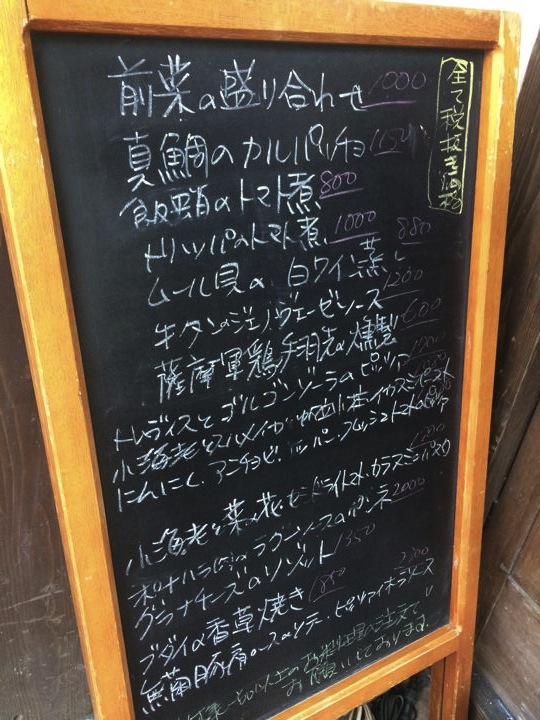 全て税抜き価格
前菜の盛り合わせ 1000
真鯛のカルパッチョ
飯蛸のトマト煮 800
トリッパのトマト煮 1000
ムール貝の白ワイン蒸し 880
牛タンのジェノヴェーゼソース 1200
薩摩軍鶏手羽先の燻製 600
トレヴィスとゴルゴンゾーラのピッツァ
小海老と
にんにく、アンチョビ、フレッシュトマトの
小海老と菜の花、セミドライトマト、カラスミのパスタ
ラグーソースの 2000
グラナチーズのリゾット 1350
ブダイの香草焼き
無菌豚肩ロースのソテー
以上のお料理のご注文を
お願いしております